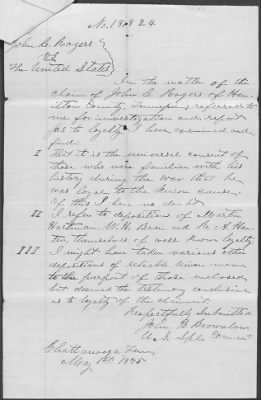 No. 18824
John C. Rogers
vs
The United States
In the matter of the
claim of John C. Rogers of Ham-
ilton County, Tennessee, referred to
me for investigation and report
as to loyalty I have examined and
find
I That it is the universal consent of
those who were familiar with his
history during the war that he
was loyal to the Union cause.
Of this I have no doubt
II I refer to depositions of Martin
Hartman, W. H. Bean and A. Hun-
ter, themselves of well known loyalty
III I might have taken various other
depositions of reliable Union men
to the purport of those enclosed,
but deemed the testimony conclusive
as to loyalty of the claimant.
Respectfully Submitted
John B Brownlow
U. S. Spl. Comr
Chattanooga Tenn,
May 1st 1875